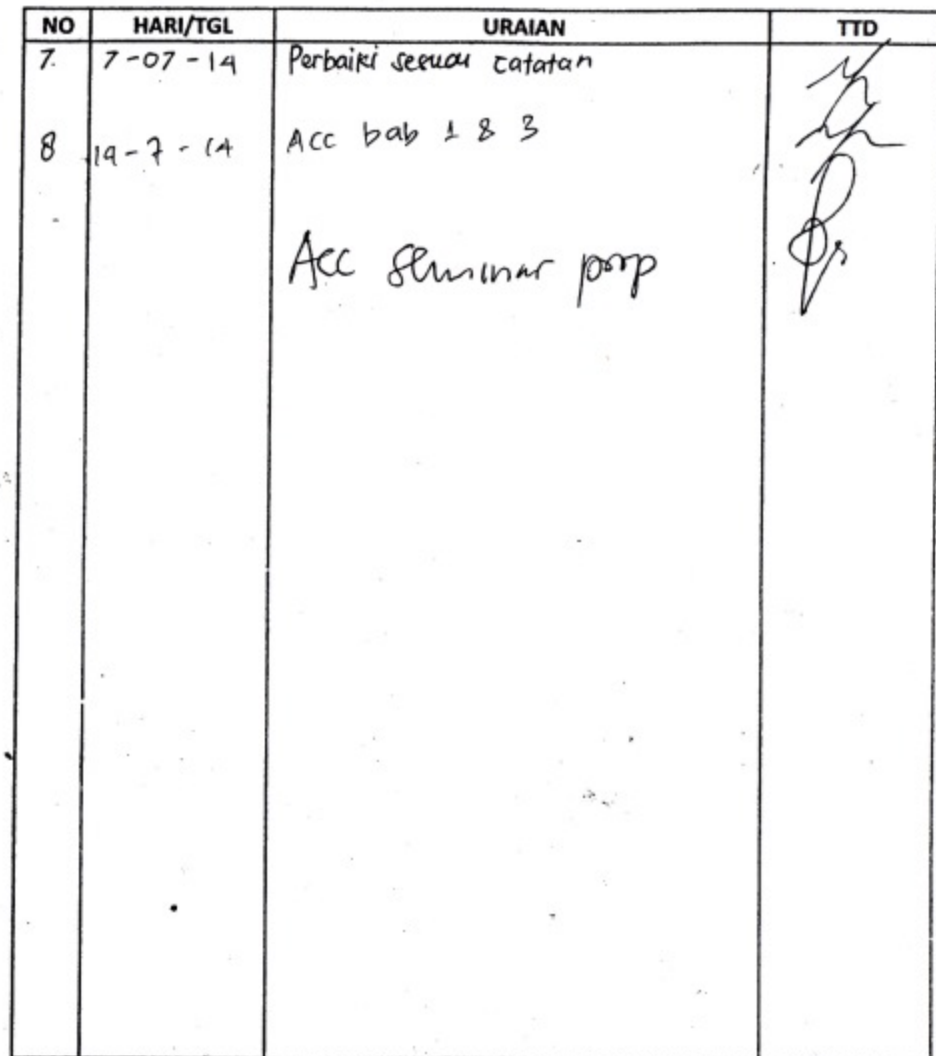 NO HARI/TGL URAIAN TTD
7. 7-07-14 Perbaiki sesuai catatan
8 19-7-14 Acc bab 1 & 3
Acc seminar prop